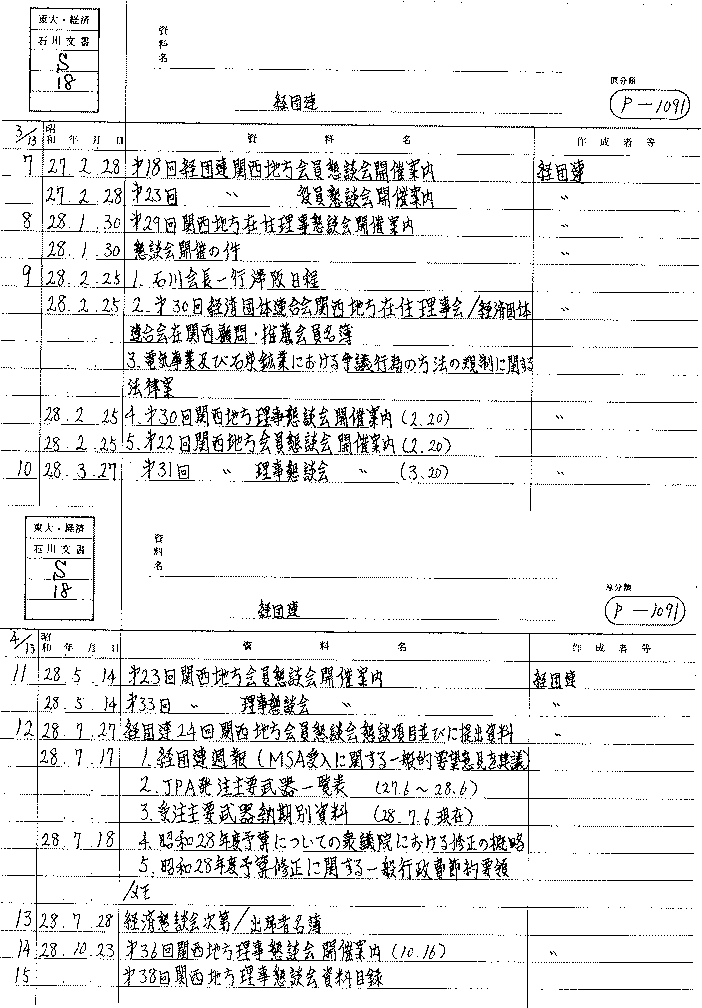 東大・経済
石川文書
S
18
資料名
経団連
原分類
P-1091
3/13 昭和 年 月 日 資料名 作成者等
7 27.2.28 第18回経団連関西地方会員懇談会開催案内 経団連
27 2 28 第23回 〃 役員懇談会開催案内 〃
8 28.1.30 第29回関西地方在住理事懇談会開催案内 〃
28.1.30 懇談会開催の件 〃
9 28.2.25 1.石川会長一行滞阪日程
28.2.25 2.第30回経済団体連合会関西地方在住理事会/経済団体 〃
連合会在関西顧問・推薦会員名簿
3.電気事業及び石炭鉱業における争議行為の方法の規制に関する
法律案
28.2 25 4.第30回関西地方理事懇談会開催案内(2.20) 〃
28.2.25 5.第22回関西地方会員懇談会開催案内(2.20)
10 28.3.27 第31回 〃 理事懇談会 〃 (3.20) 〃
東大・経済
石川文書
S
18
資料名
経団連
原分類
P-1091
4/13 昭和 年 月 日 資料名 作成者等
11 28.5.14 第23回関西地方会員懇談会開催案内 経団連
28.5.14 第33回 〃 理事懇談会 〃 〃
12 28.7.27 経団連24回関西地方会員懇談会懇談項目並びに提出資料 〃
28.7.17 1.経団連週報(MSA受入に関する一般的要望意見を建議)
2.JPA発注主要武器一覧表 (27.6~28.6)
3.受注主要武器納期別資料 (28.7.6現在)
28.7.18 4.昭和28年度予算についての衆議院における修正の概略
5.昭和28年度予算修正に関する一般行政費節約要領
/メモ
13 28.7.28 経済懇談会次第/出席者名簿
14 28.10.23 第36回関西地方理事懇談会開催案内(10.16) 〃
15 第38回関西地方理事懇談会資料目録